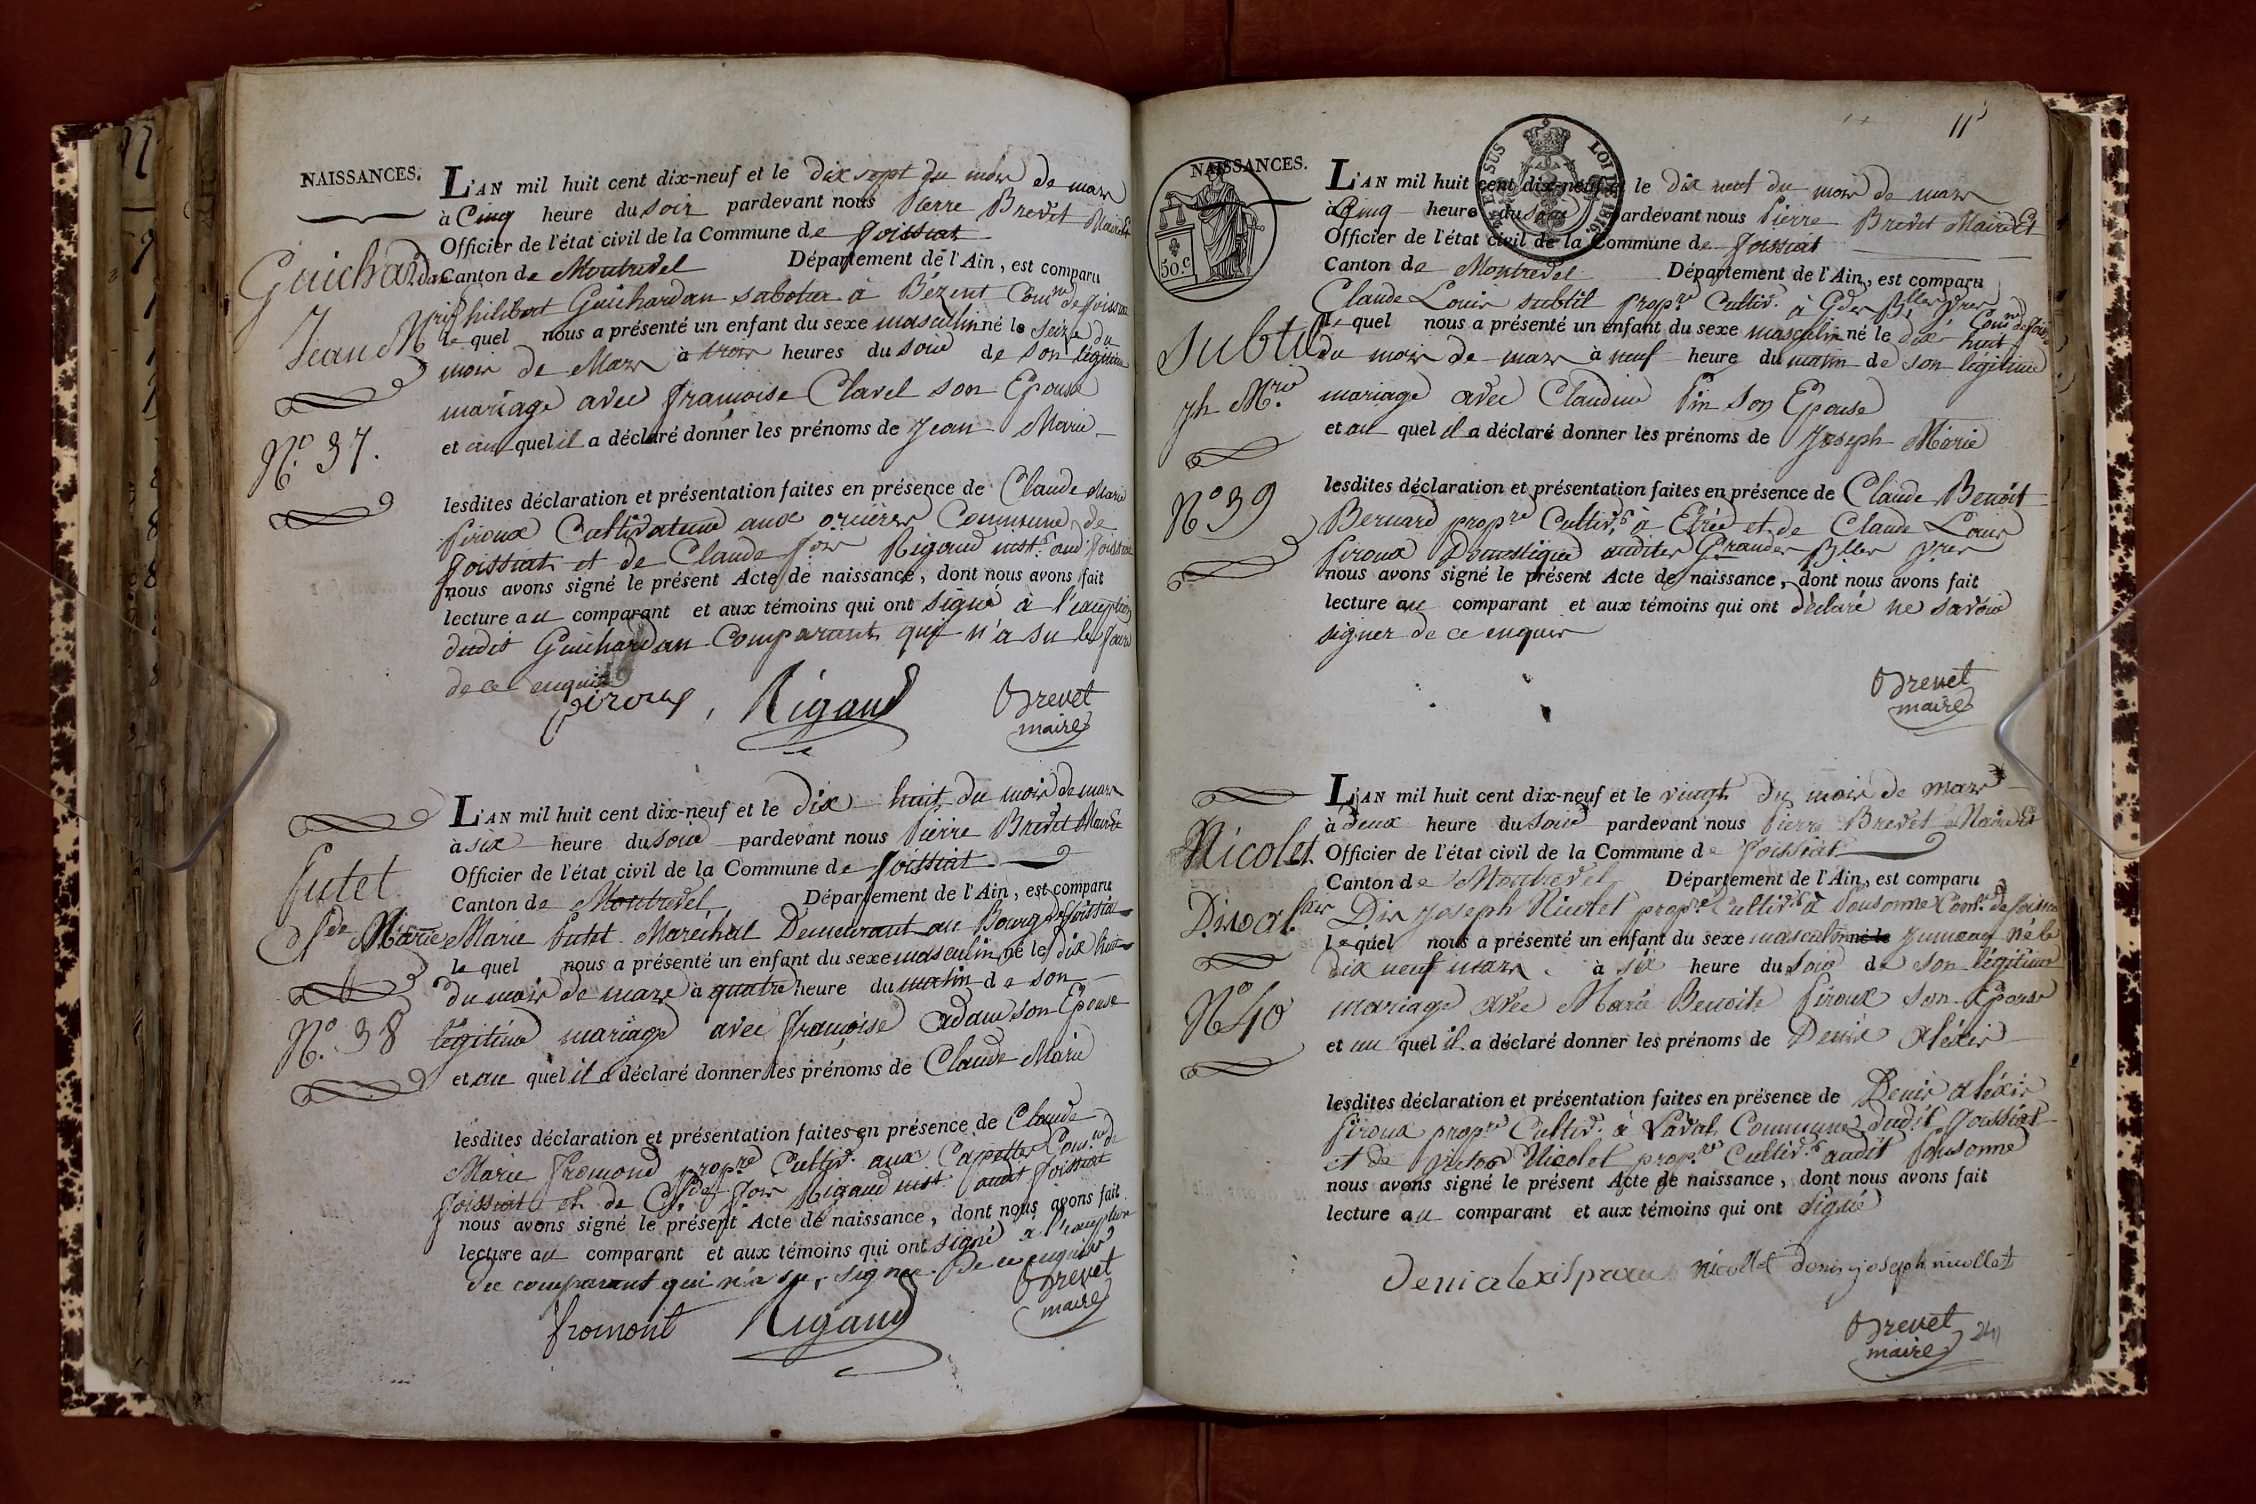 NAISSANCES.
L'AN mil huit cent dix-neuf et le dix sept du mois de mars
à Cinq heure du soir pardevant nous Pierre Brevet Maire Et
Officier de l'état civil de la Commune de foissiat
Canton de Montrevel Département de l'Ain, est comparu
philibert Guichardan sabotier à Bézent Com.ne de foissiat
le quel nous a présenté un enfant du sexe masculin né le seize du
mois de Mars à trois heures du soir de son légitime
mariage avec françoise Clavel son Epouse
et au quel il a déclaré donner les prénoms de Jean Marie
lesdites déclaration et présentation faites en présence de Claude Marie
Piroux Cultivateur aux orcières Commune de
foissiat et de Claude f.ois Rigaud inst.r aud. foissiat
nous avons signé le présent Acte de naissance, dont nous avons fait
lecture au comparant et aux témoins qui ont signé à l'exception
dudit Guichardan Comparant qui n'a su le faire
de ce enquis
piroux, Rigaud Brevet
maire
Guichardan
Jean M.rie
N.o 37.
L'AN mil huit cent dix-neuf et le dix huit du mois de mars
à six heure du soir pardevant nous Pierre Brevet Maire Et
Officier de l'état civil de la Commune de foissiat
Canton de Montrevel Département de l'Ain, est comparu
Marie Putet Maréchal Demeurant au Bourg de foissiat
le quel nous a présenté un enfant du sexe masculin né le dix huit
du mois de mars à quatre heure du matin de son
légitime mariage avec françoise adam son Epouse
et au quel il a déclaré donner les prénoms de Claude Marie
lesdites déclaration et présentation faites en présence de Claude
Marie fromond prop.re Cultiv.r aux Capettes Com.ne de
foissiat et de C.de f.ois Rigaud inst. audt foissiat
nous avons signé le présent Acte de naissance, dont nous avons fait
lecture au comparant et aux témoins qui ont signé à l'exception
du comparant qui n'a su signer De ce enquis
fromont Rigaud Brevet
maire
Putet
C.de Marie
N.o 38
11
NAISSANCES.
LOI DE 1816.
50.c
L'AN mil huit cent dix-neuf et le dix neuf du mois de mars
à Cinq heure du soir pardevant nous Pierre Brevet Maire Et
Officier de l'état civil de la Commune de foissiat
Canton de Montrevel Département de l'Ain, est comparu
Claude Louis subtil prop.re Cultiv.r à
le quel nous a présenté un enfant du sexe masculin né le dix huit
du mois de mars à neuf heure du matin de son légitime
mariage avec Claudine Pin son Epouse
et au quel il a déclaré donner les prénoms de Joseph Marie
lesdites déclaration et présentation faites en présence de Claude Benoit
Bernard prop.re Cultiv.r à Etrée et de Claude Louis
Piroux Domestique audites Grandes
nous avons signé le présent Acte de naissance, dont nous avons fait
lecture au comparant et aux témoins qui ont déclaré ne savoir
signer de ce enquis
Brevet
maire
Subtil
Jh M.rie
N.o 39
L'AN mil huit cent dix-neuf et le vingt du mois de mars
à deux heure du soir pardevant nous Pierre Brevet Maire Et
Officier de l'état civil de la Commune de foissiat
Canton de Montrevel Département de l'Ain, est comparu
Dis Joseph Nicolet prop.re Cultiv.r à Pousonne Com.e de foissiat
le quel nous a présenté un enfant du sexe masculin né le jumeau né le
dix neuf mars à six heure du soir de son légitime
mariage avec Marie Benoite Piroux son Epouse
et au quel il a déclaré donner les prénoms de Denis aléxis
lesdites déclaration et présentation faites en présence de Denis aléxis
Piroux prop.re Cultiv.r à Laval Commune dudit foissiat
et de Nicolet prop.re Cultiv.r audit Pousonne
nous avons signé le présent Acte de naissance, dont nous avons fait
lecture au comparant et aux témoins qui ont signé
nicollet denis joseph nicollet
Brevet
maire
Nicolet
N.o 40